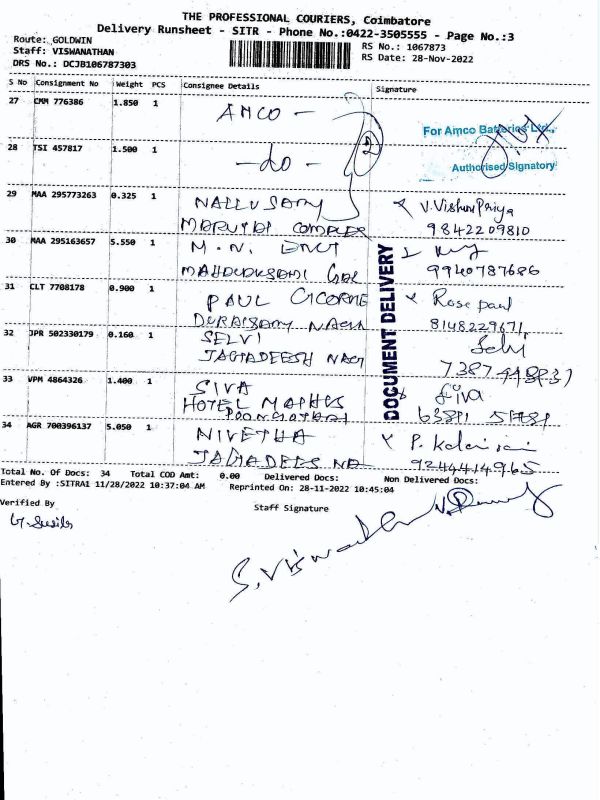 THE PROFESSIONAL COURIERS, Coimbatore
Delivery Runsheet - SITR - Phone No.:0422-3505555 - Page No.:3
Route: GOLDWIN
Staff: VISWANATHAN
DRS No.: DCJB106787303
RS No.: 1067873
RS Date: 28-Nov-2022
S No Consignment No Weight PCS Consignee Details Signature
27 CMM 776386 1.850 1 AMCO -
For Amco Batteries Ltd.,
28 TSI 457817 1.500 1 - do - 2
Authorised Signatory
29 MAA 295773263 0.325 1 NALLUSAMY V. Vishnu Priya
MARUTHI COMPLEX 9842209810
30 MAA 295163657 5.550 1 M. N.
9940787686
31 CLT 7708178 0.900 1 PAUL Rose paul
DURAISAMY NAGAR 8148229671
32 JPR 502330179 0.160 1 SELVI Selvi
JAGADEESH NAG
33 VPM 4864326 1.400 1 SIVA Siva
HOTEL
34 AGR 700396137 5.050 1 NIVETHA P.
9244414965
DOCUMENT DELIVERY
Total No. Of Docs: 34 Total COD Amt: 0.00 Delivered Docs: Non Delivered Docs:
Entered By :SITRA1 11/28/2022 10:37:04 AM Reprinted On: 28-11-2022 10:45:04
Verified By Staff Signature
S. Viswanathan